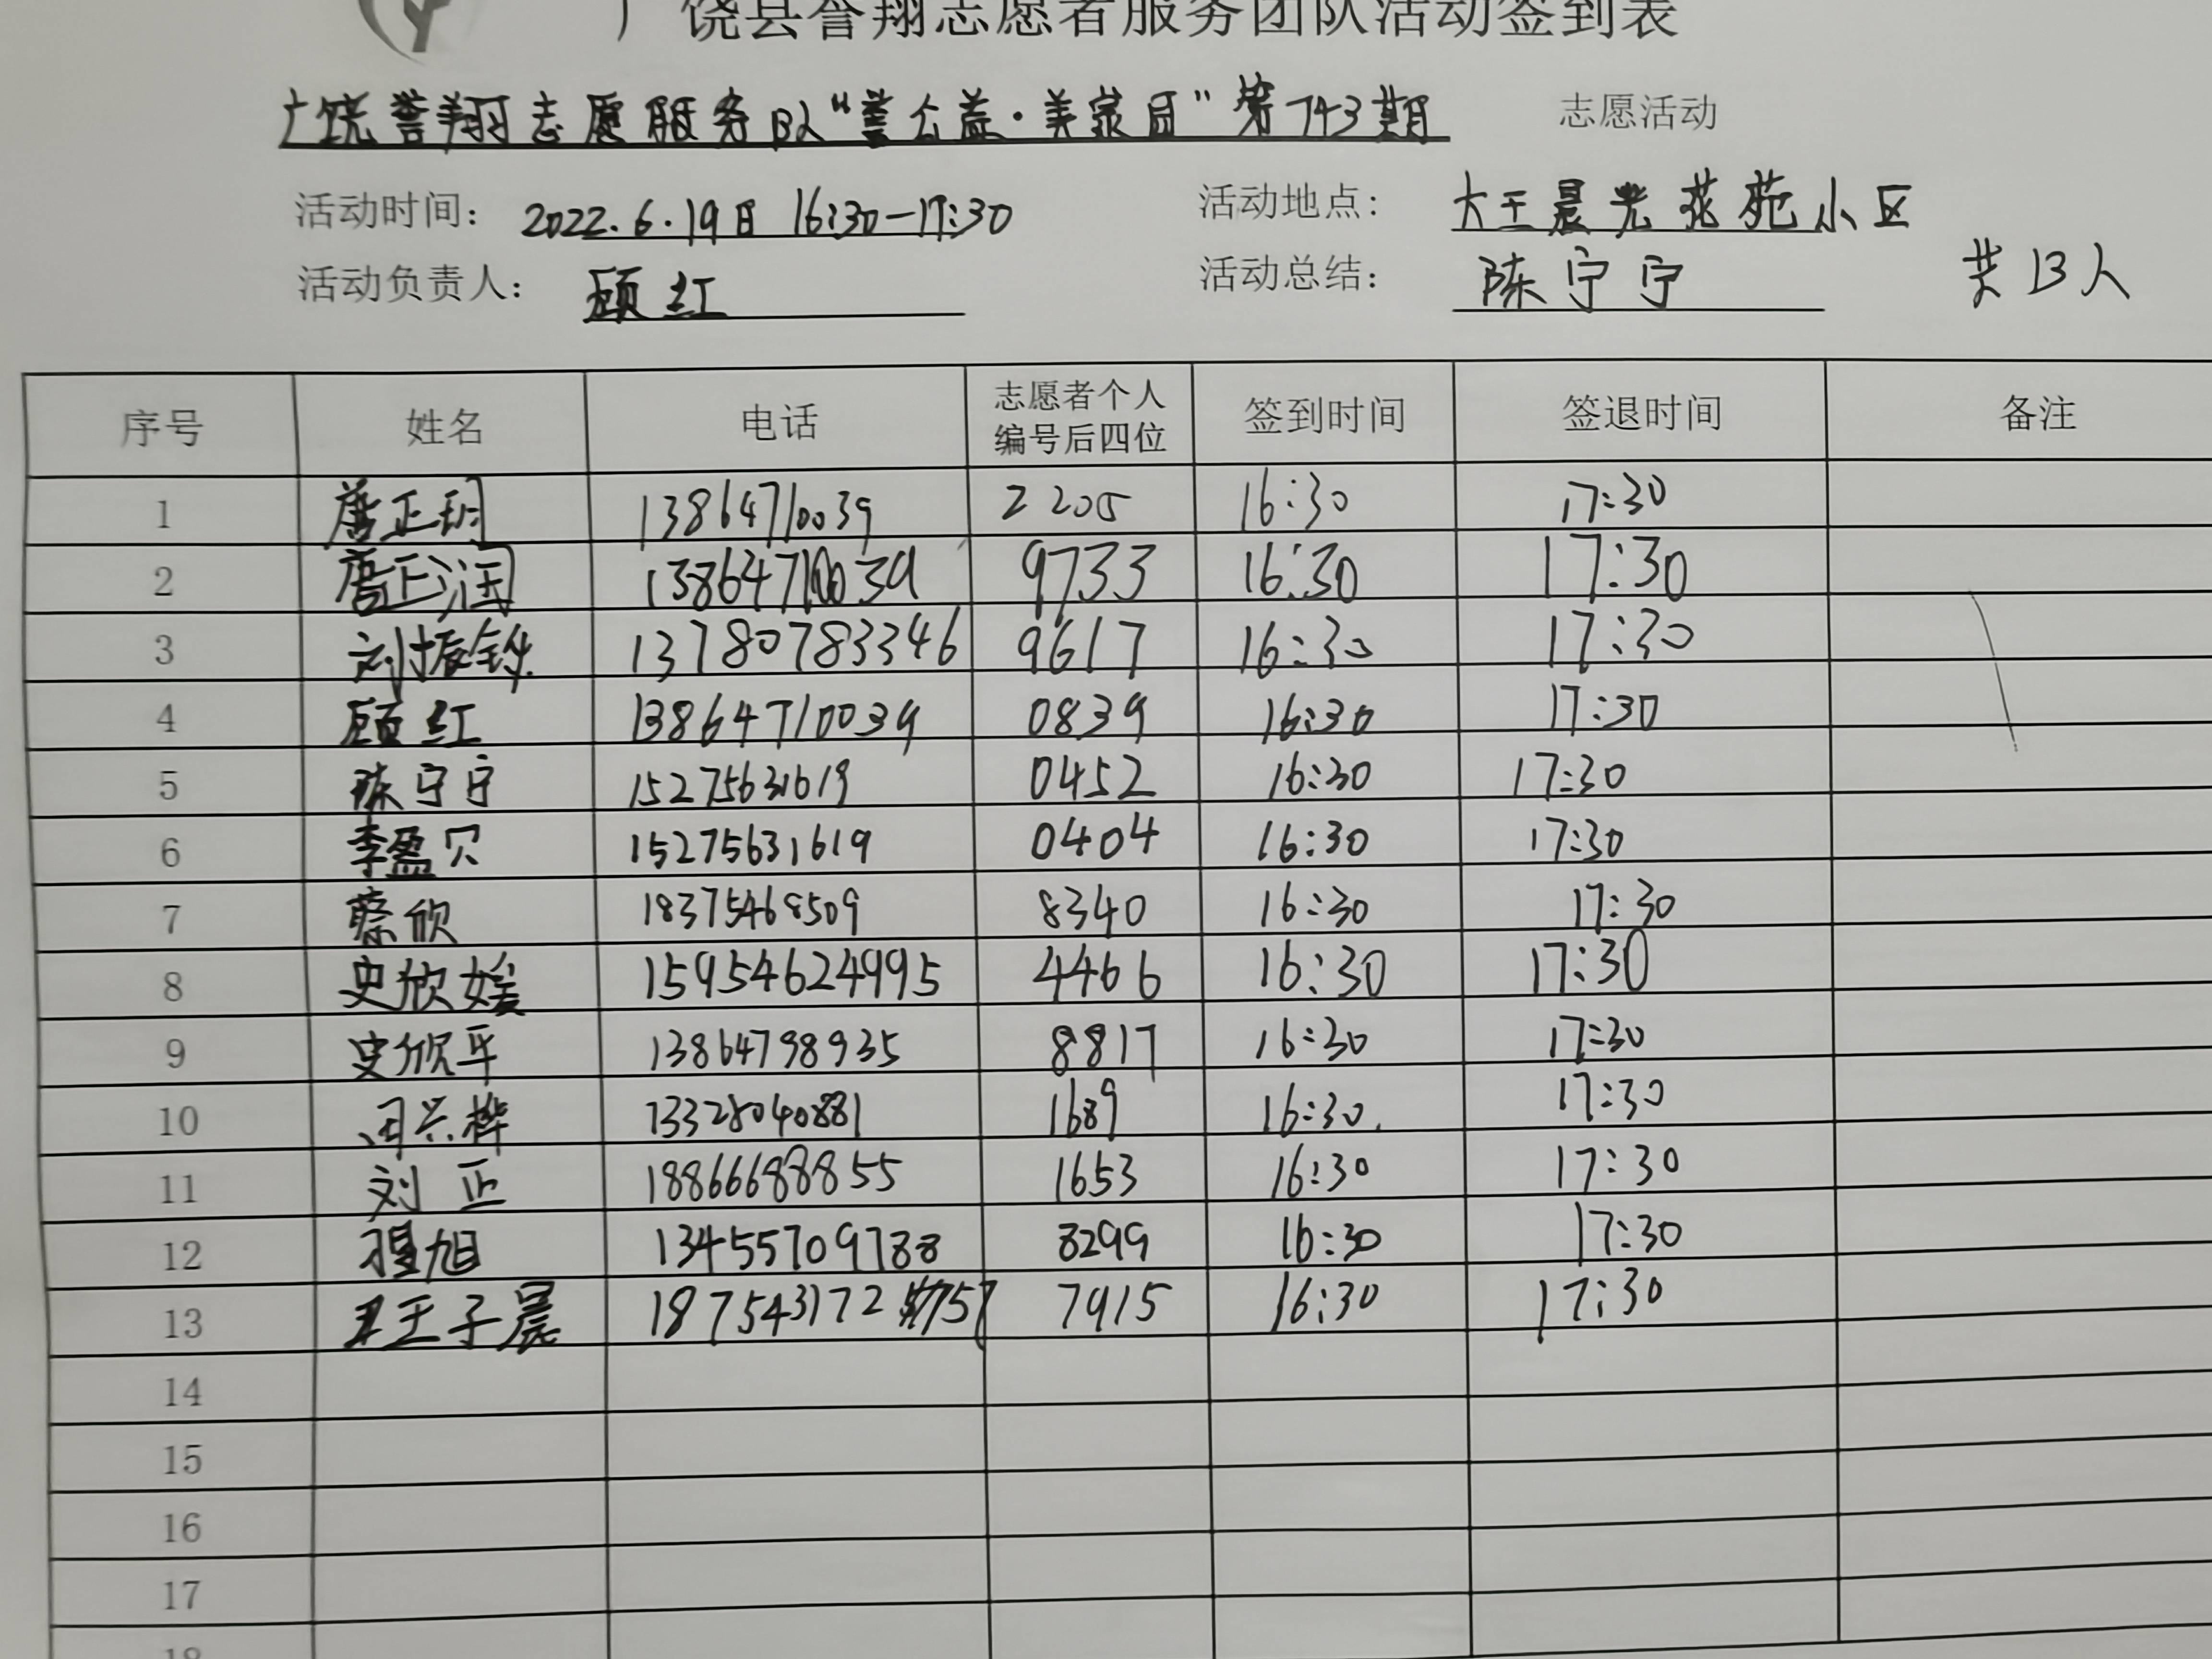 广饶县誉翔志愿者服务团队活动签到表
广饶誉翔志愿服务队“善公益·美家园”第743期 志愿活动
活动时间： 2022.6.19日 16:30—17:30 活动地点： 大王晨光花苑小区
活动负责人： 顾红 活动总结： 陈宁宁 共13人
序号 姓名 电话 志愿者个人编号后四位 签到时间 签退时间 备注
1 唐正玥 13864710039 2205 16:30 17:30
2 唐正润 13864710039 9733 16:30 17:30
3 刘振铧 13780783346 9617 16:30 17:30
4 顾红 13864710039 0839 16:30 17:30
5 陈宁宁 15275631619 0452 16:30 17:30
6 李盈贝 15275631619 0404 16:30 17:30
7 蔡欣 18375468509 8340 16:30 17:30
8 史欣媛 15954624995 4466 16:30 17:30
9 史欣平 13864798935 8817 16:30 17:30
10 闫兴桦 13328040881 1689 16:30. 17:30
11 刘正 18866688855 1653 16:30 17:30
12 旭 13455709788 8299 16:30 17:30
13 王子晨 18754317275 7915 16:30 17:30
14
15
16
17
18